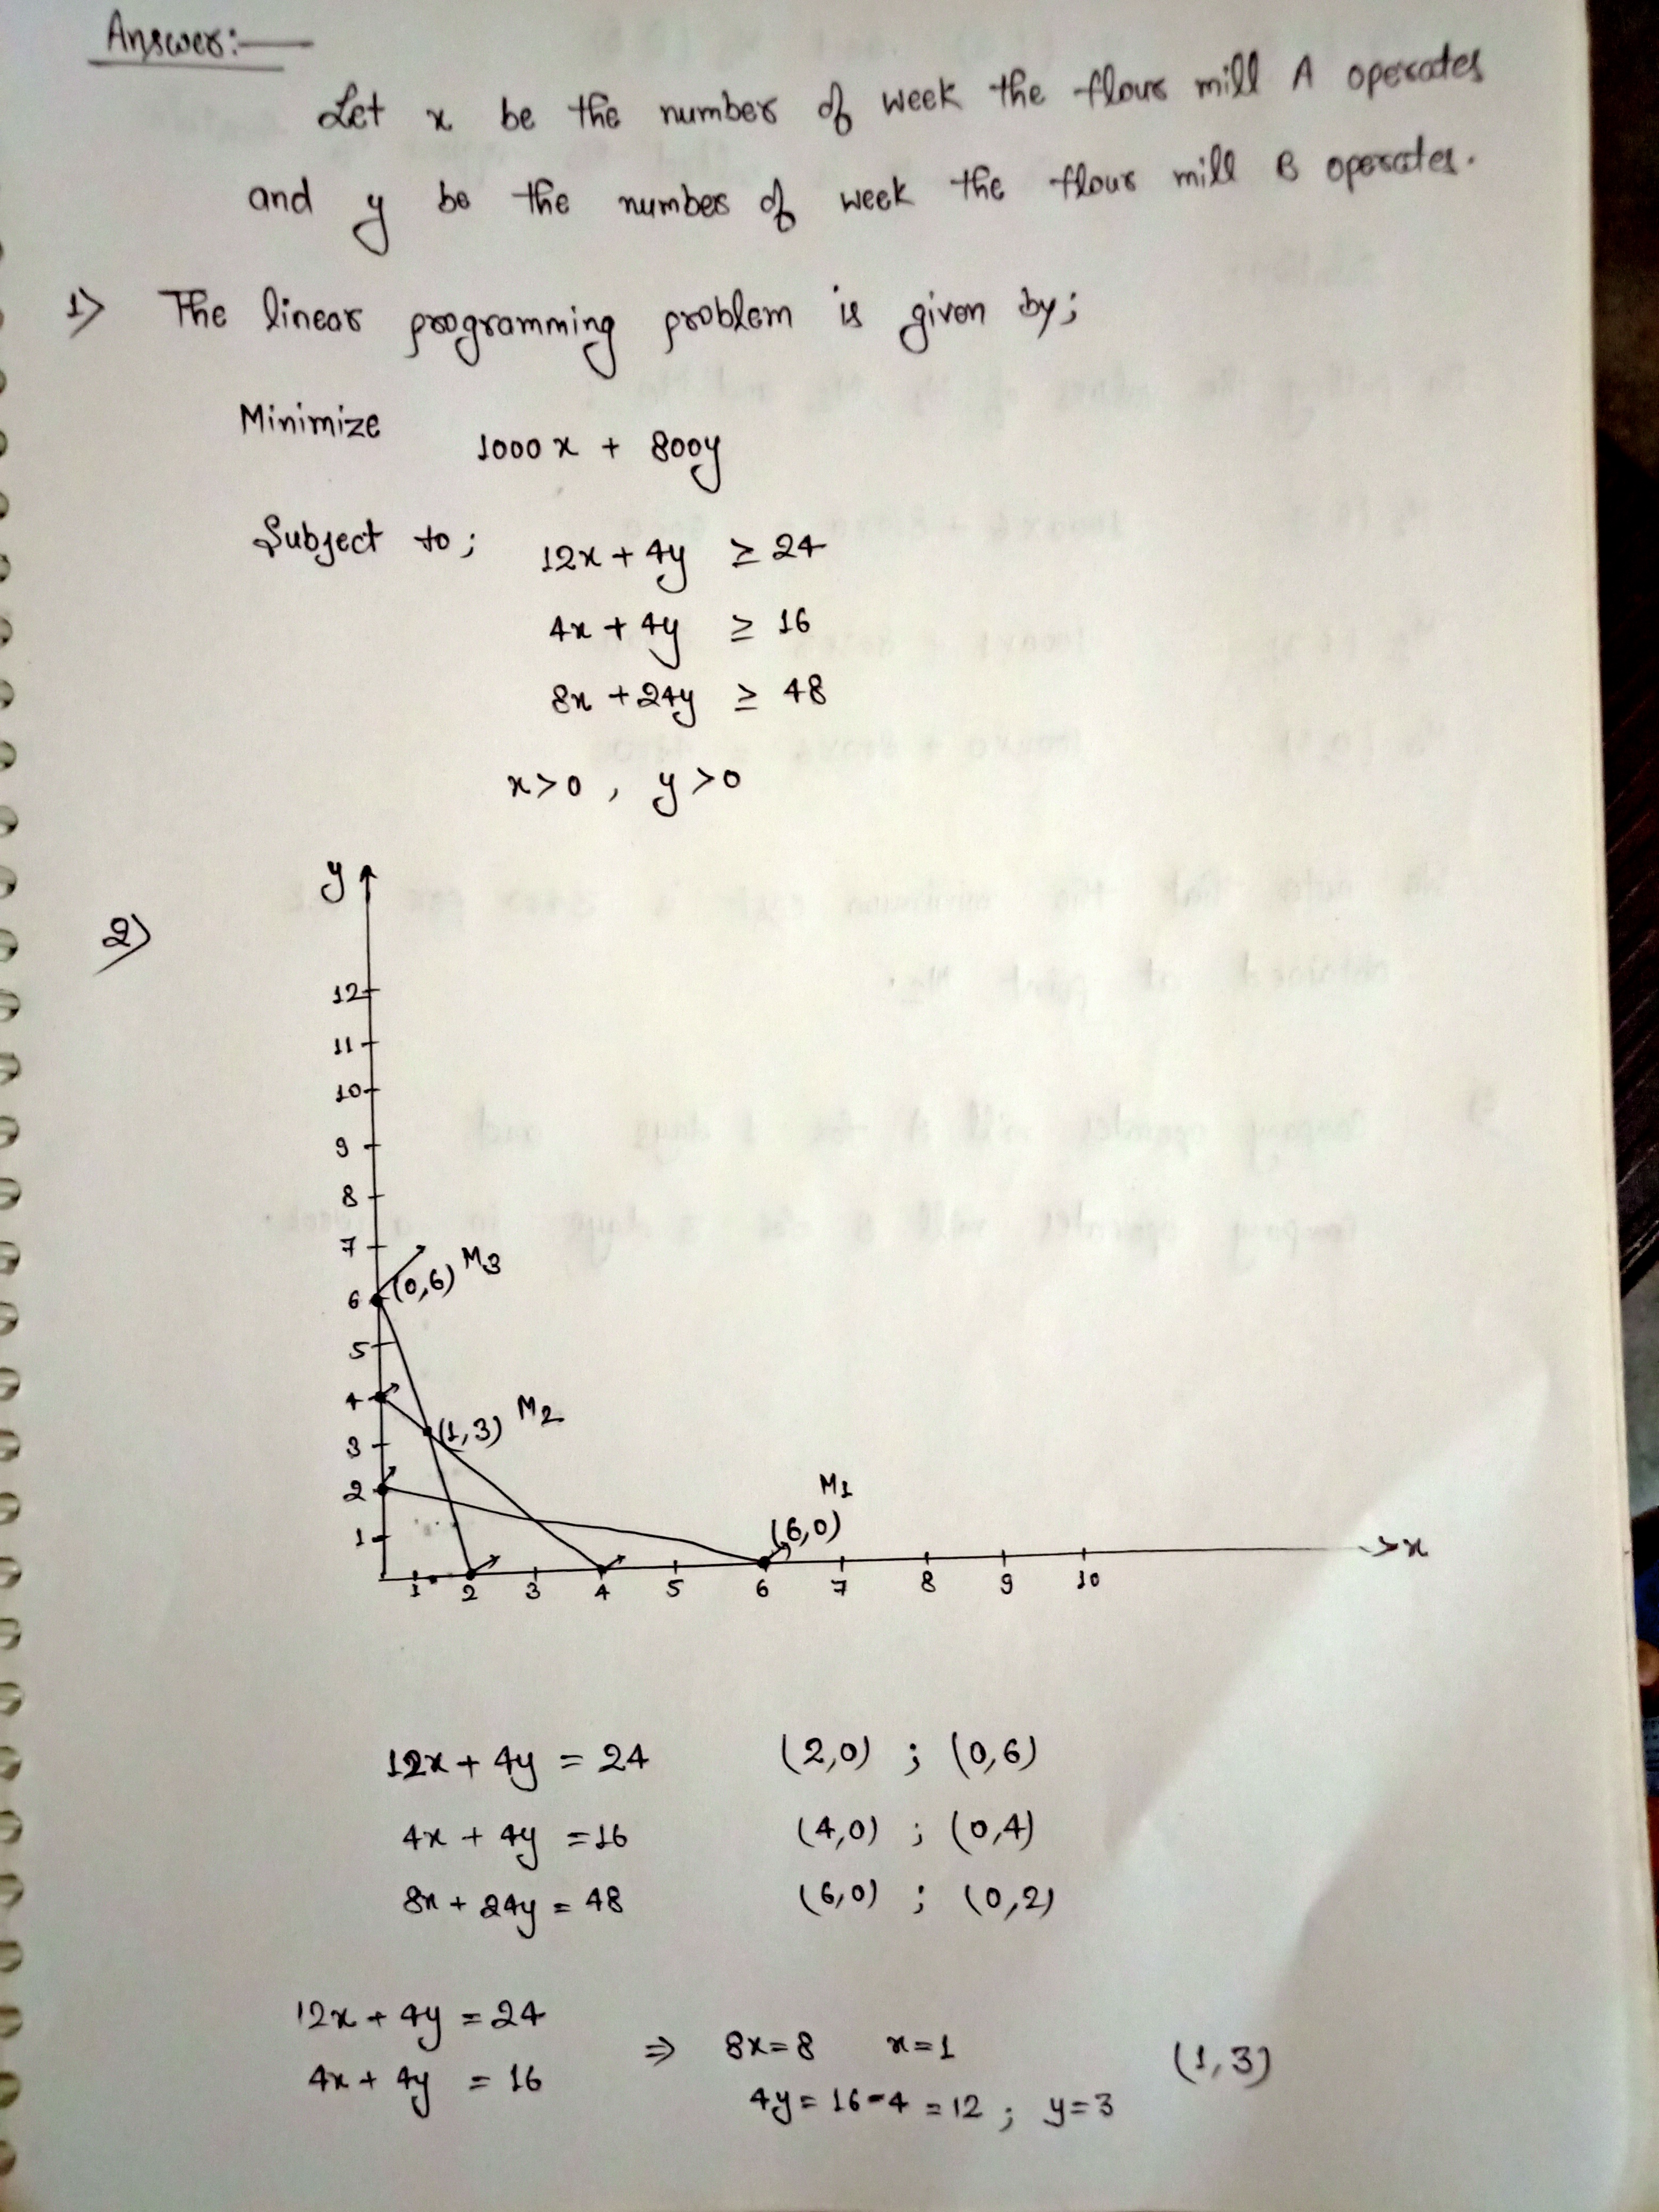 Answer:—
Let x be the number of week the flour mill A operates
and y be the number of week the flour mill B operates.
1) The linear programming problem is given by;
Minimize 1000x + 800y
Subject to; 12x + 4y ≥ 24
4x + 4y ≥ 16
8x + 24y ≥ 48
x>0 , y>0
2)
y
12
11
10
9
8
7
6 (0,6) M3
5
4
3 (1,3) M2
2
1
M1
(6,0)
1 2 3 4 5 6 7 8 9 10 x
12x + 4y = 24 (2,0) ; (0,6)
4x + 4y = 16 (4,0) ; (0,4)
8x + 24y = 48 (6,0) ; (0,2)
12x + 4y = 24
4x + 4y = 16
⇒ 8x = 8 x = 1 (1,3)
4y = 16 - 4 = 12 ; y = 3